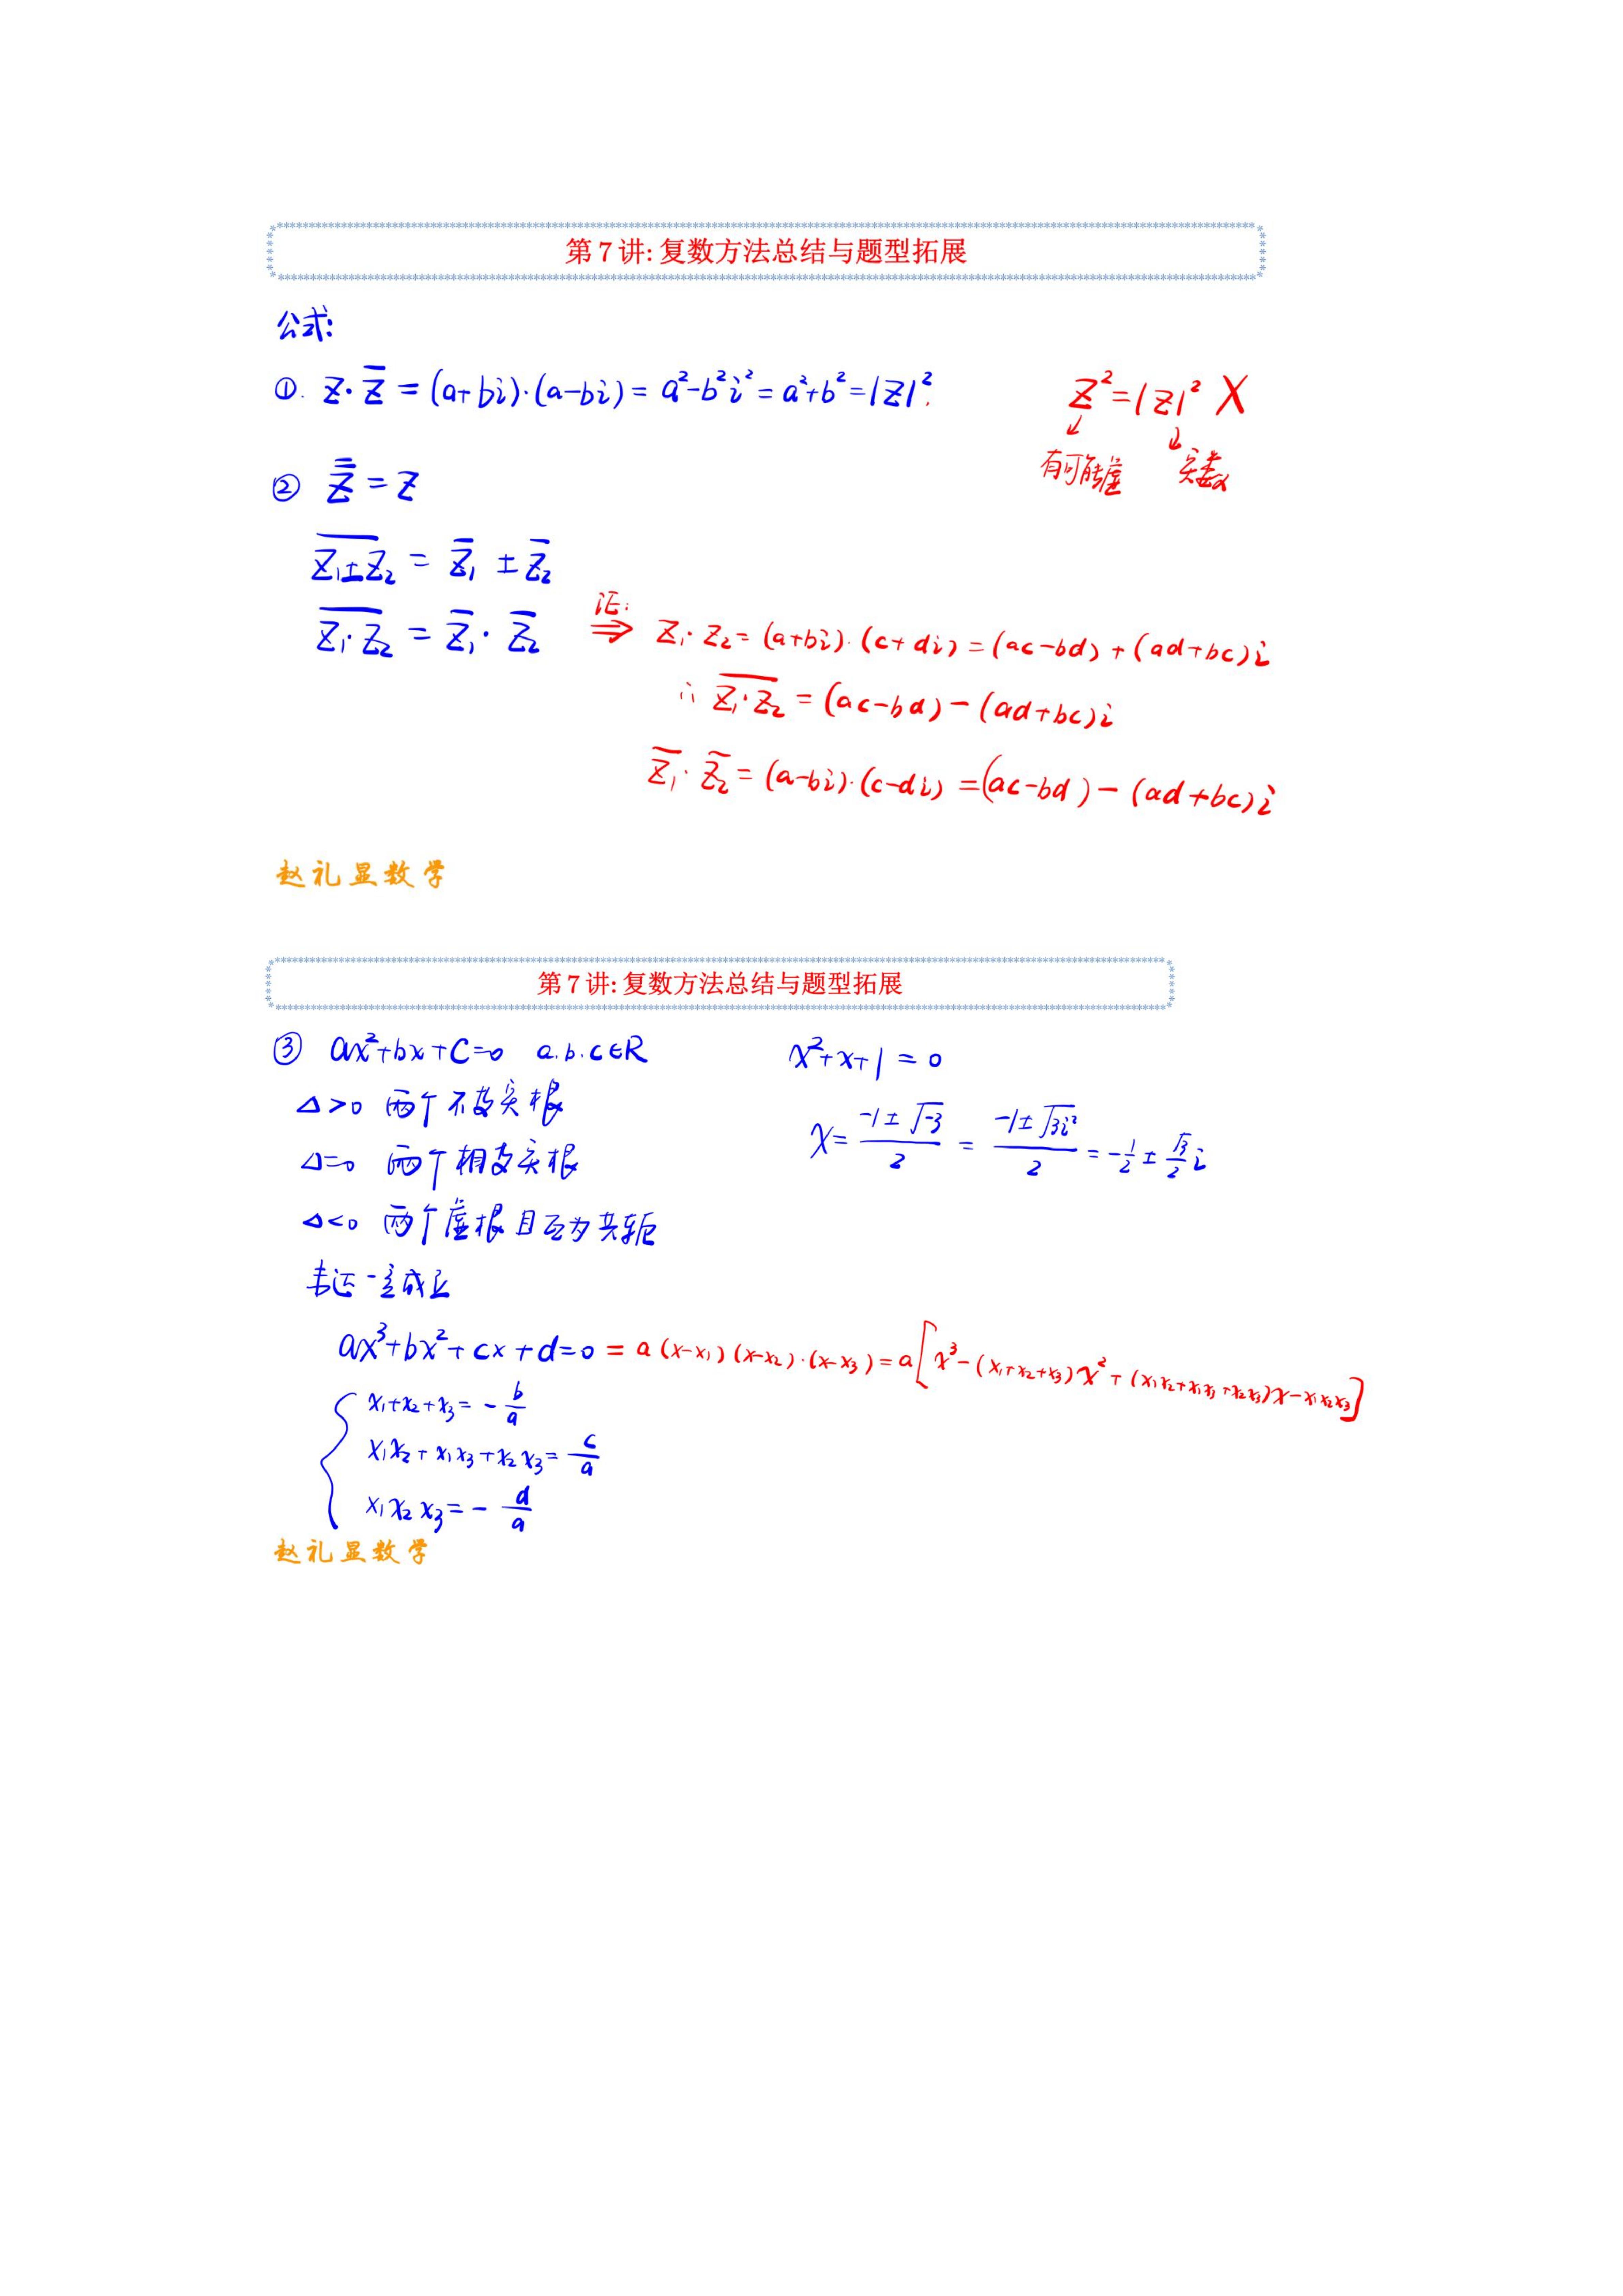 第7讲: 复数方法总结与题型拓展
公式:
①. z·z̅ = (a+bi)·(a-bi) = a²-b²i² = a²+b² = |z|².
z² = |z|² ✗
↓ ↓
有可能虚 实数
② z̿ = z
\overline{z₁±z₂} = z̅₁ ± z̅₂
\overline{z₁·z₂} = z̅₁·z̅₂
证: ⇒ z₁·z₂ = (a+bi)·(c+di) = (ac-bd)+(ad+bc)i
∴ \overline{z₁·z₂} = (ac-bd)-(ad+bc)i
z̅₁·z̅₂ = (a-bi)·(c-di) = (ac-bd)-(ad+bc)i
赵礼显数学
第7讲: 复数方法总结与题型拓展
③ ax²+bx+c=0 a.b.c∈R
Δ>0 两个不等实根
Δ=0 两个相等实根
Δ<0 两个虚根且互为共轭
韦达一定成立
x²+x+1=0
x = \frac{-1±√-3}{2} = \frac{-1±√3i²}{2} = -\frac{1}{2} ± \frac{√3}{2}i
ax³+bx²+cx+d=0 = a(x-x₁)(x-x₂)·(x-x₃) = a[x³-(x₁+x₂+x₃)x²+(x₁x₂+x₁x₃+x₂x₃)x-x₁x₂x₃]
x₁+x₂+x₃ = -\frac{b}{a}
x₁x₂+x₁x₃+x₂x₃ = \frac{c}{a}
x₁x₂x₃ = -\frac{d}{a}
赵礼显数学